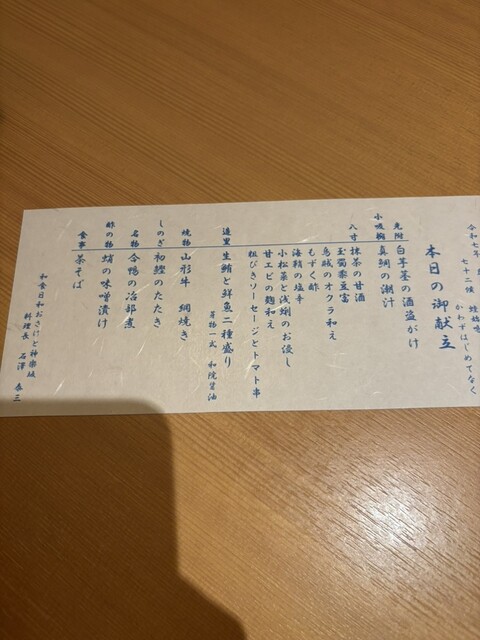 令和七年
七十二候 蛙始鳴
かわずはじめてなく
本日の御献立
先附 白芋茎の酒盗がけ
小吸椀 真鯛の潮汁
八寸 抹茶の甘酒
玉蜀黍豆富
烏賊のオクラ和え
もずく酢
海鞘の塩辛
小松菜と浅蜊のお浸し
甘エビの麹和え
粗びきソーセージとトマト串
造里 生鮪と鮮魚二種盛り
あしらい一式 和院醤油
焼物 山形牛 網焼き
しのぎ 初鰹のたたき
名物 合鴨の治部煮
酢の物 蛸の味噌漬け
食事 茶そば
和食日和おさけと神楽坂
料理長 石澤 泰三